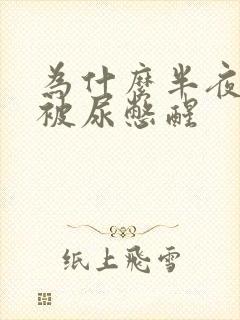 為什麼半夜
被尿憋醒
纸上飛雪